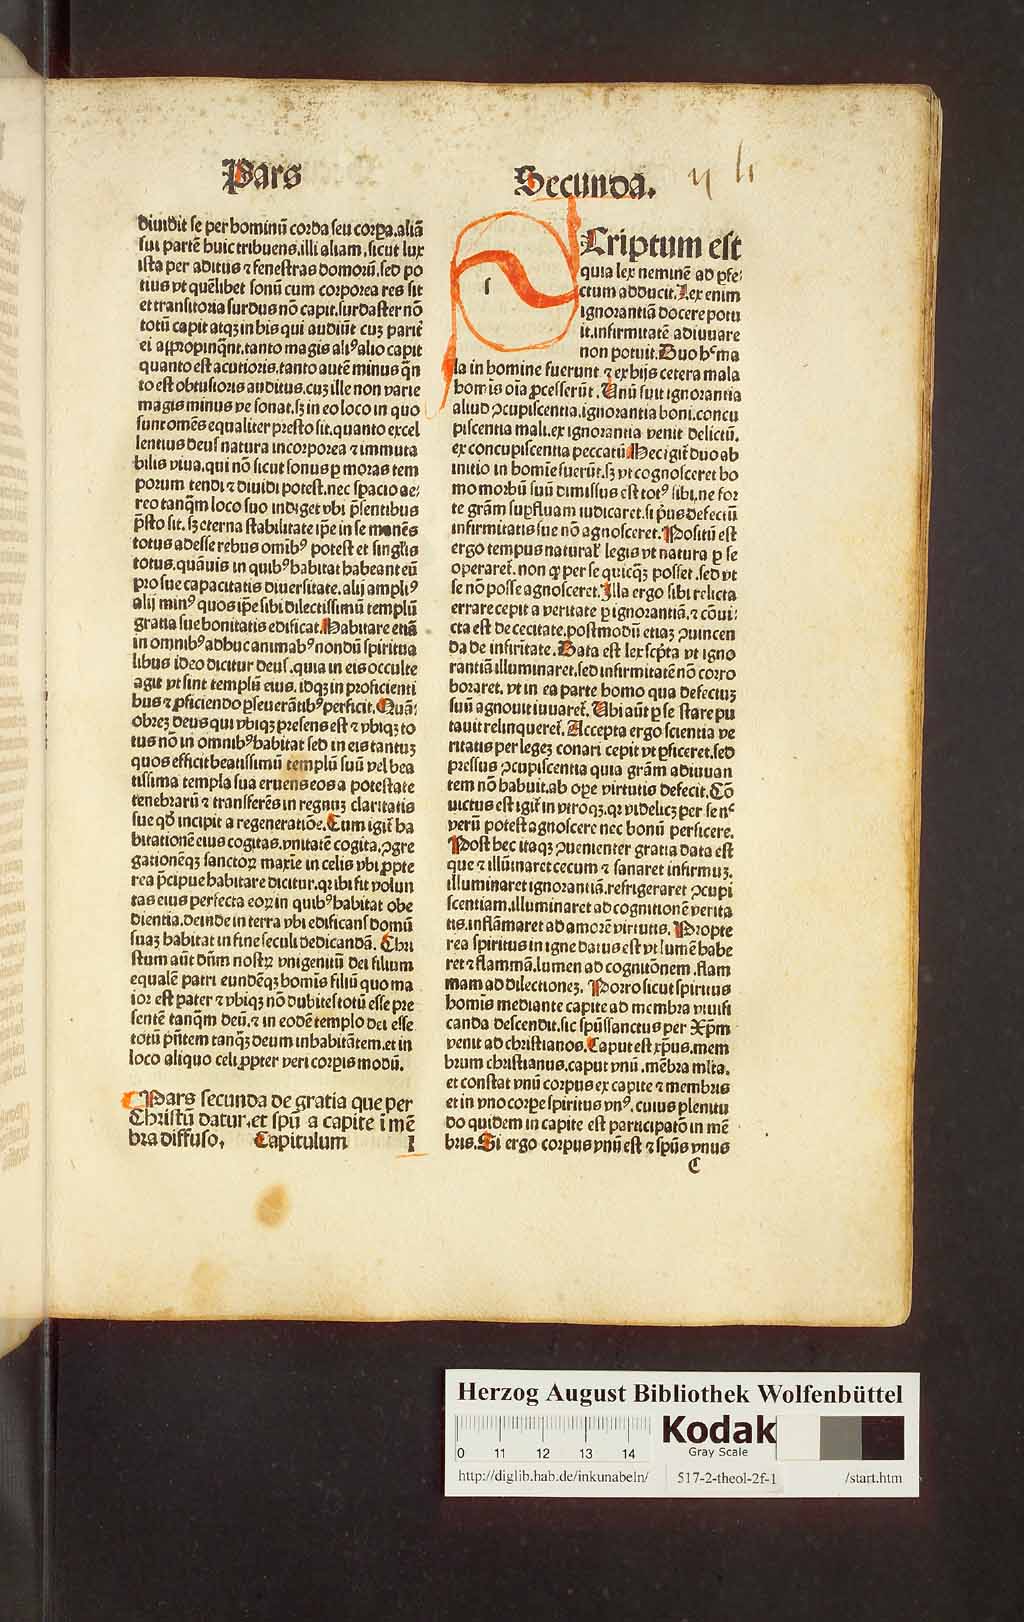 Pars
Secunda.
diuidit se per hominū corda seu corꝑa.aliā
sui partē huic tribuens.illi aliam.sicut lux
ista per aditus ⁊ fenestras domorū.sed po
tius vt quēlibet sonū cum corporea res sit
et transitoria surdus nō capit.surdaster nō
totū capit atqꝫ in his qui audiūt cuꝫ parit̄
ei appropinq̄nt.tanto magis aliꝰ alio capit
quanto est acutioris.tanto autē minus q̄n
to est obtusioris auditus.cuꝫ ille non varie
magis minus ve sonat.sꝫ in eo loco in quo
sunt omēs equaliter presto sit.quanto excel
lentius deus natura incorporea ⁊ immuta
bilis viua.qui nō sicut sonus ꝑ moras tem
porum tendi ⁊ diuidi potest.nec spacio ae⸗
reo tanq̄m loco suo indiget vbi p̄sentibus
p̄sto sit. sꝫ eterna stabilitate ip̄e in se manēs
totus adesse rebus om̄ibꝰ potest et singl̄is
totus.quāuis in quibꝰ habitat habeant eū
pro sue capacitatis diuersitate.alij ampliꝰ
alij minꝰ quos ip̄e sibi dilectissimū templū
gratia sue bonitatis edificat.Habitare etiā
in omnibꝰ adhuc animabꝰ nondū spiritua
libus ideo dicitur deus.quia in eis occulte
agit vt sint templū eius. idqꝫ in proficienti
bus ⁊ ꝓficiendo ꝑseuerātibꝰ perficit.Quā⸗
obreꝫ deus qui vbiqꝫ presens est ⁊ vbiqꝫ to
tus nō in omnibꝰ habitat sed in eis tantuꝫ
quos efficit beatissimū templū suū vel bea
tissima templa sua eruens eos a potestate
tenebrarū ⁊ transferēs in regnuꝫ claritatis
sue qd̓ incipit a regeneratiōe.Cum igit̄ ha
bitationē eius cogitas.vnitatē cogita.ꝯgre
gationēqꝫ sanctoꝝ maxīe in celis vbi ꝓpte
rea p̄cipue habitare dicitur.qꝛ ibi fit volun
tas eius perfecta eoꝝ in quibꝰ habitat obe
dientia.deinde in terra vbi edificans domū
suaꝫ habitat in fine seculi dedicandā. Chri
stum aūt dn̄m nostꝝ vnigenitū dei filium
equalē patri eundēqꝫ homīs filiū quo ma
ior est pater ⁊ vbiqꝫ nō dubites totū esse pre
sentē tanq̄m deū.⁊ in eodē templo dei esse
totū p̄ntem tanq̄ꝫ deum inhabitātem.et in
loco aliquo celi ꝓpter veri corꝑis modū.
Pars secunda de gratia que per
Christū datur.et spū a capite ī mē
bra diffuso. Capitulum I
s
Criptum est
quia lex neminē ad ꝑfe⸗
ctum adducit.Lex enim
ignorantiā docere potu
it.infirmitatē adiuuare
non potuit.Duo h̓ ma
la in homine fuerunt ⁊ ex hijs cetera mala
homīs oīa ꝓcesserūt. Unū fuit ignorantia
aliud ꝯcupiscentia.ignorantia boni.concu
piscentia mali.ex ignorantia venit delictū.
ex concupiscentia peccatū.Hec igit̄ duo ab
initio in homīe fuerūt.sꝫ vt cognosceret ho
mo morbū suū dimissus est totꝰ sibi.ne for
te grām suꝑfluam iudicaret.si pͥus defectū
infirmitatis sue nō agnosceret.Positū est
ergo tempus natural̓ legis vt natura ꝑ se
operaret̄. non qꝙ per se quicqꝫ posset .sed vt
se nō posse agnosceret.Illa ergo sibi relicta
errare cepit a veritate ꝑ ignorantiā.⁊ cōui⸗
cta est de cecitate.postmodū etiaꝫ ꝯuincen
da de infir̄itate. Data est lex scp̄ta vt igno
rantiā illuminaret.sed infirmitatē nō corro
boraret. vt in ea parte homo qua defectuꝫ
suū agnouit iuuaret̄. Ubi aūt ꝑ se stare pu
tauit relinqueret̄. Accepta ergo scientia ve
ritatis per legeꝫ conari cepit vt ꝑficeret.sed
pressus ꝯcupiscentia quia grām adiuuan
tem nō habuit.ab ope virtutis defecit.Cō
uictus est igit̄ in vtroqꝫ.qꝛ videlicꝫ per se nͨ
verū potest agnoscere nec bonū perficere.
Post hec itaqꝫ ꝯuenienter gratia data est
que ⁊ illūinaret cecum ⁊ sanaret infirmuꝫ.
illuminaret ignorantiā.refrigeraret ꝯcupi
scentiam.illuminaret ad cognitionē verita
tis.inflāmaret ad amorē virtutis. Propte
rea spiritus in igne datus est vt lumē habe
ret ⁊ flammā.lumen ad cognitōnem.flam
mam ad dilectioneꝫ. Porro sicut spiritus
homīs mediante capite ad membra viuifi
canda descendit.sic sp̄ussanctus per Xp̄m
venit ad christianos.Caput est xp̄us.mem
brum christianus.caput vnū .mēbra ml̓ta.
et constat vnū corpus ex capite ⁊ membris
et in vno corꝑe spiritus vnꝰ. cuius plenitu
do quidem in capite est participatō in mē
bris.Si ergo corpus vnū est ⁊ sp̄us vnus
C
Herzog August Bibliothek Wolfenbüttel
0 11 12 13 14
Kodak
Gray Scale
http://diglib.hab.de/inkunabeln/ 517-2-theol-2f-1 /start.htm